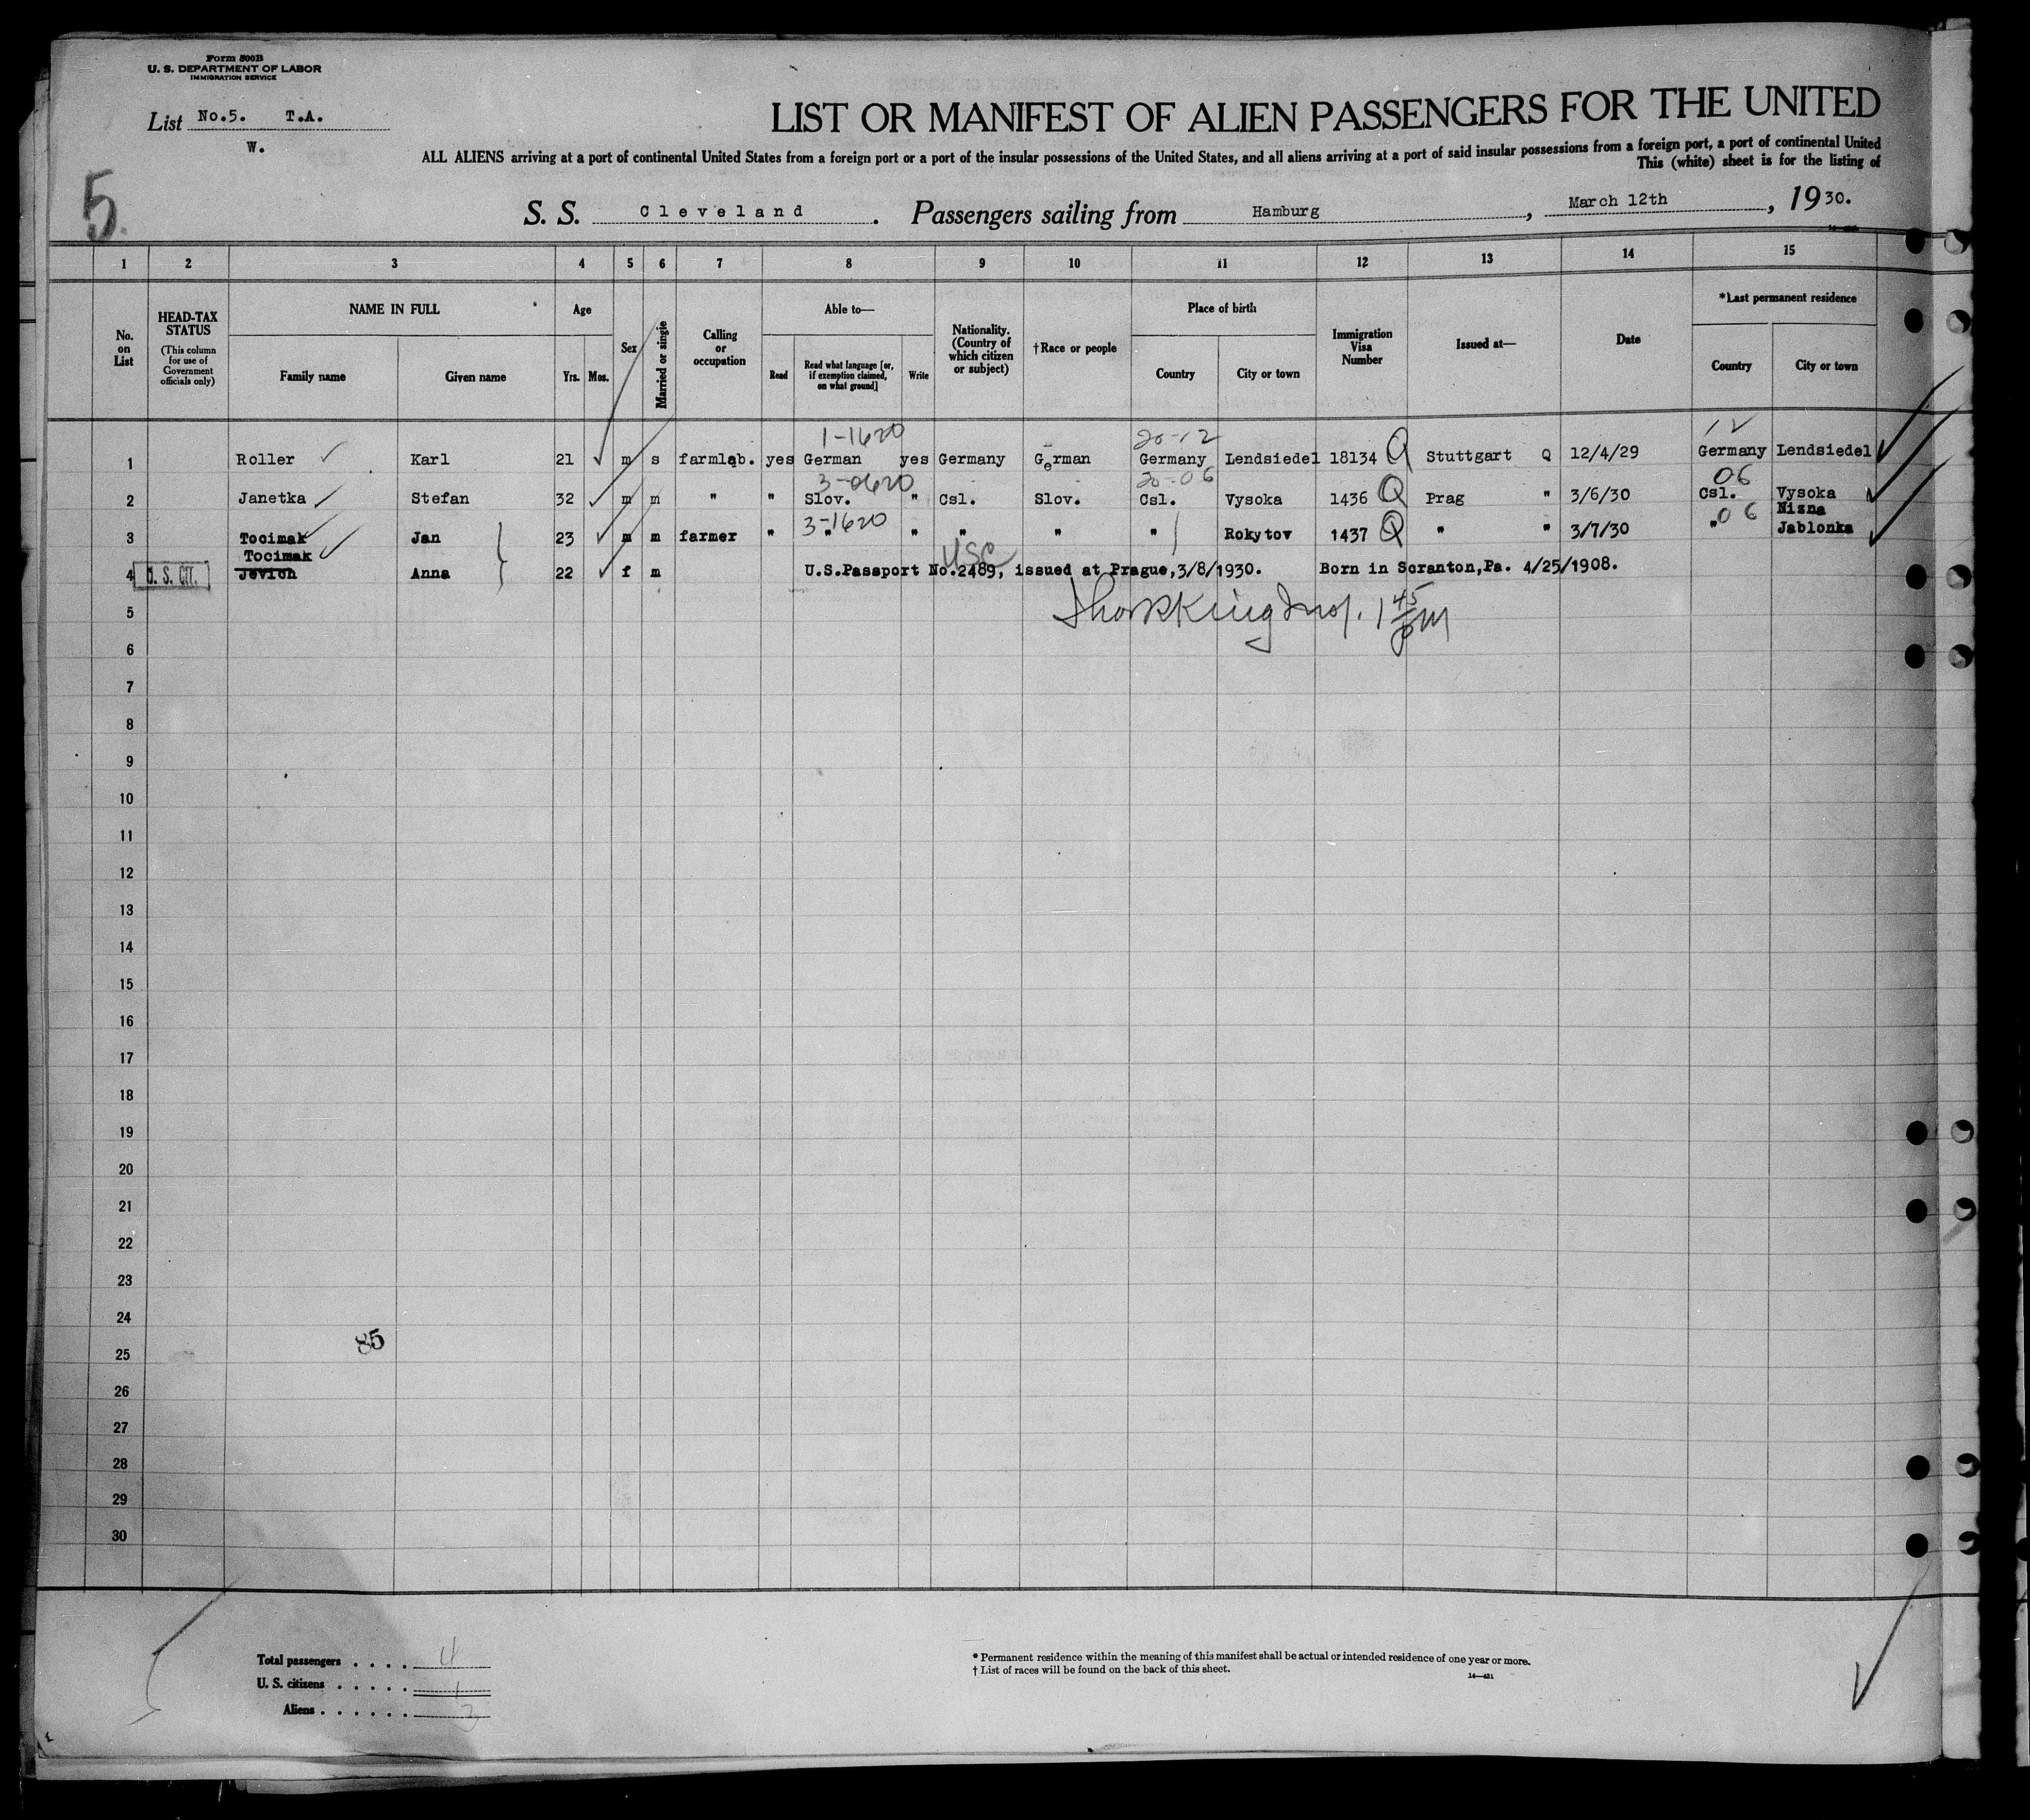 Form 500B
U. S. DEPARTMENT OF LABOR
IMMIGRATION SERVICE
List No.5. T.A.
W.
5.
LIST OR MANIFEST OF ALIEN PASSENGERS FOR THE UNITED
ALL ALIENS arriving at a port of continental United States from a foreign port or a port of the insular possessions of the United States, and all aliens arriving at a port of said insular possessions from a foreign port, a port of continental United
This (white) sheet is for the listing of
S. S. Cleveland. Passengers sailing from Hamburg, March 12th, 1930.
1 2 3 4 5 6 7 8 9 10 11 12 13 14 15
No. on List
HEAD-TAX STATUS (This column for use of Government officials only)
NAME IN FULL
Family name Given name
Age
Yrs. Mos.
Sex
Married or single
Calling or occupation
Able to—
Read Read what language [or, if exemption claimed, on what ground] Write
Nationality. (Country of which citizen or subject)
†Race or people
Place of birth
Country City or town
Immigration Visa Number
Issued at—
Date
*Last permanent residence
Country City or town
1-1620 20-12 12
1 Roller Karl 21 m s farmlab. yes German yes Germany German Germany Lendsiedel 18134 Q Stuttgart Q 12/4/29 Germany Lendsiedel
3-0620 20-06 06
2 Janetka Stefan 32 m m " " Slov. " Csl. Slov. Csl. Vysoka 1436 Q Prag " 3/6/30 Csl. Vysoka
3-1620 06 Nizna
3 Tocimak Jan 23 m m farmer " " " " " " Rokytov 1437 Q " " 3/7/30 " Jablonka
Tocimak USC
4 U. S. CIT. Jevich Anna 22 f m U.S.Passport No.2489, issued at Prague,3/8/1930. Born in Scranton,Pa. 4/25/1908.
5
6
7
8
9
10
11
12
13
14
15
16
17
18
19
20
21
22
23
24
85
25
26
27
28
29
30
Total passengers . . . . 4
U. S. citizens . . . . . 1
Aliens . . . . . . 3
* Permanent residence within the meaning of this manifest shall be actual or intended residence of one year or more.
† List of races will be found on the back of this sheet.
14—431